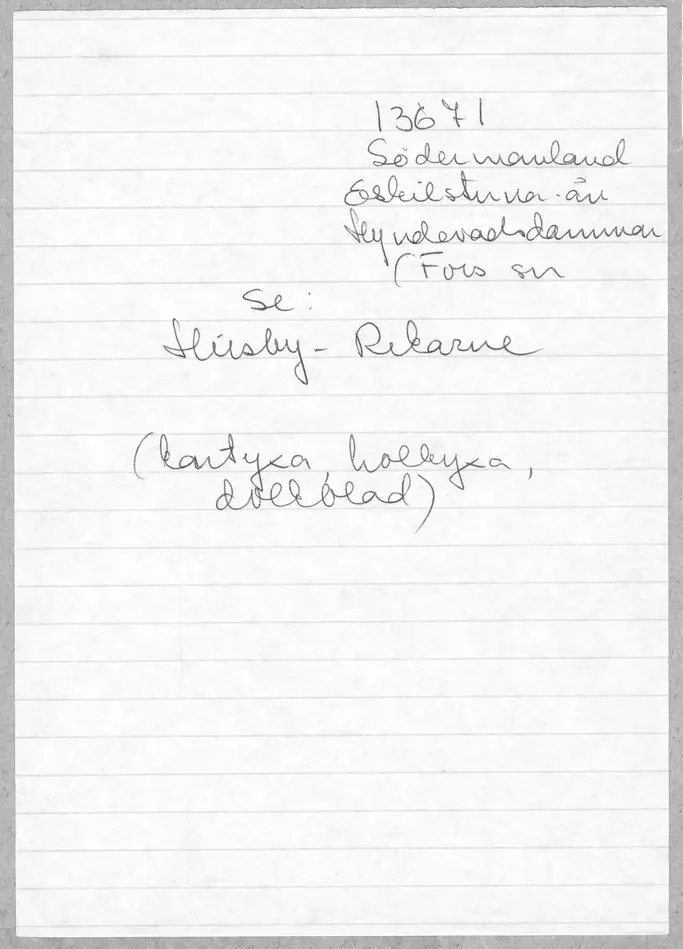 13671
Södermanland
Eskilstuna-ån
Hyndevadsdammen
(Fors sn
Se:
Husby-Rekarne
(kantyxa, holkyxa,
dolkblad)